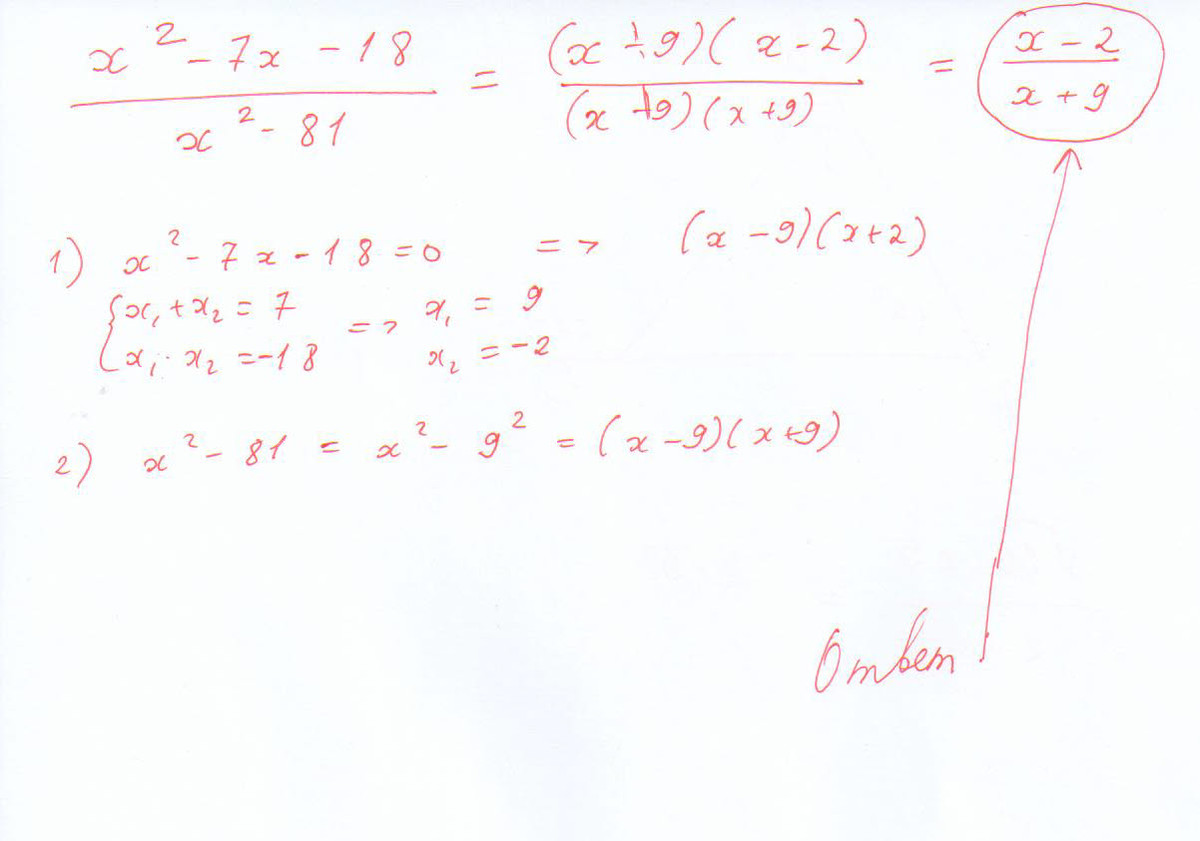 x² - 7x - 18 / x² - 81 = (x - 9)(x - 2) / (x - 9)(x + 9) = x - 2 / x + 9
1) x² - 7x - 18 = 0 => (x - 9)(x + 2)
{x₁ + x₂ = 7
x₁ · x₂ = -18 => x₁ = 9
x₂ = -2
2) x² - 81 = x² - 9² = (x - 9)(x + 9)
Ответ